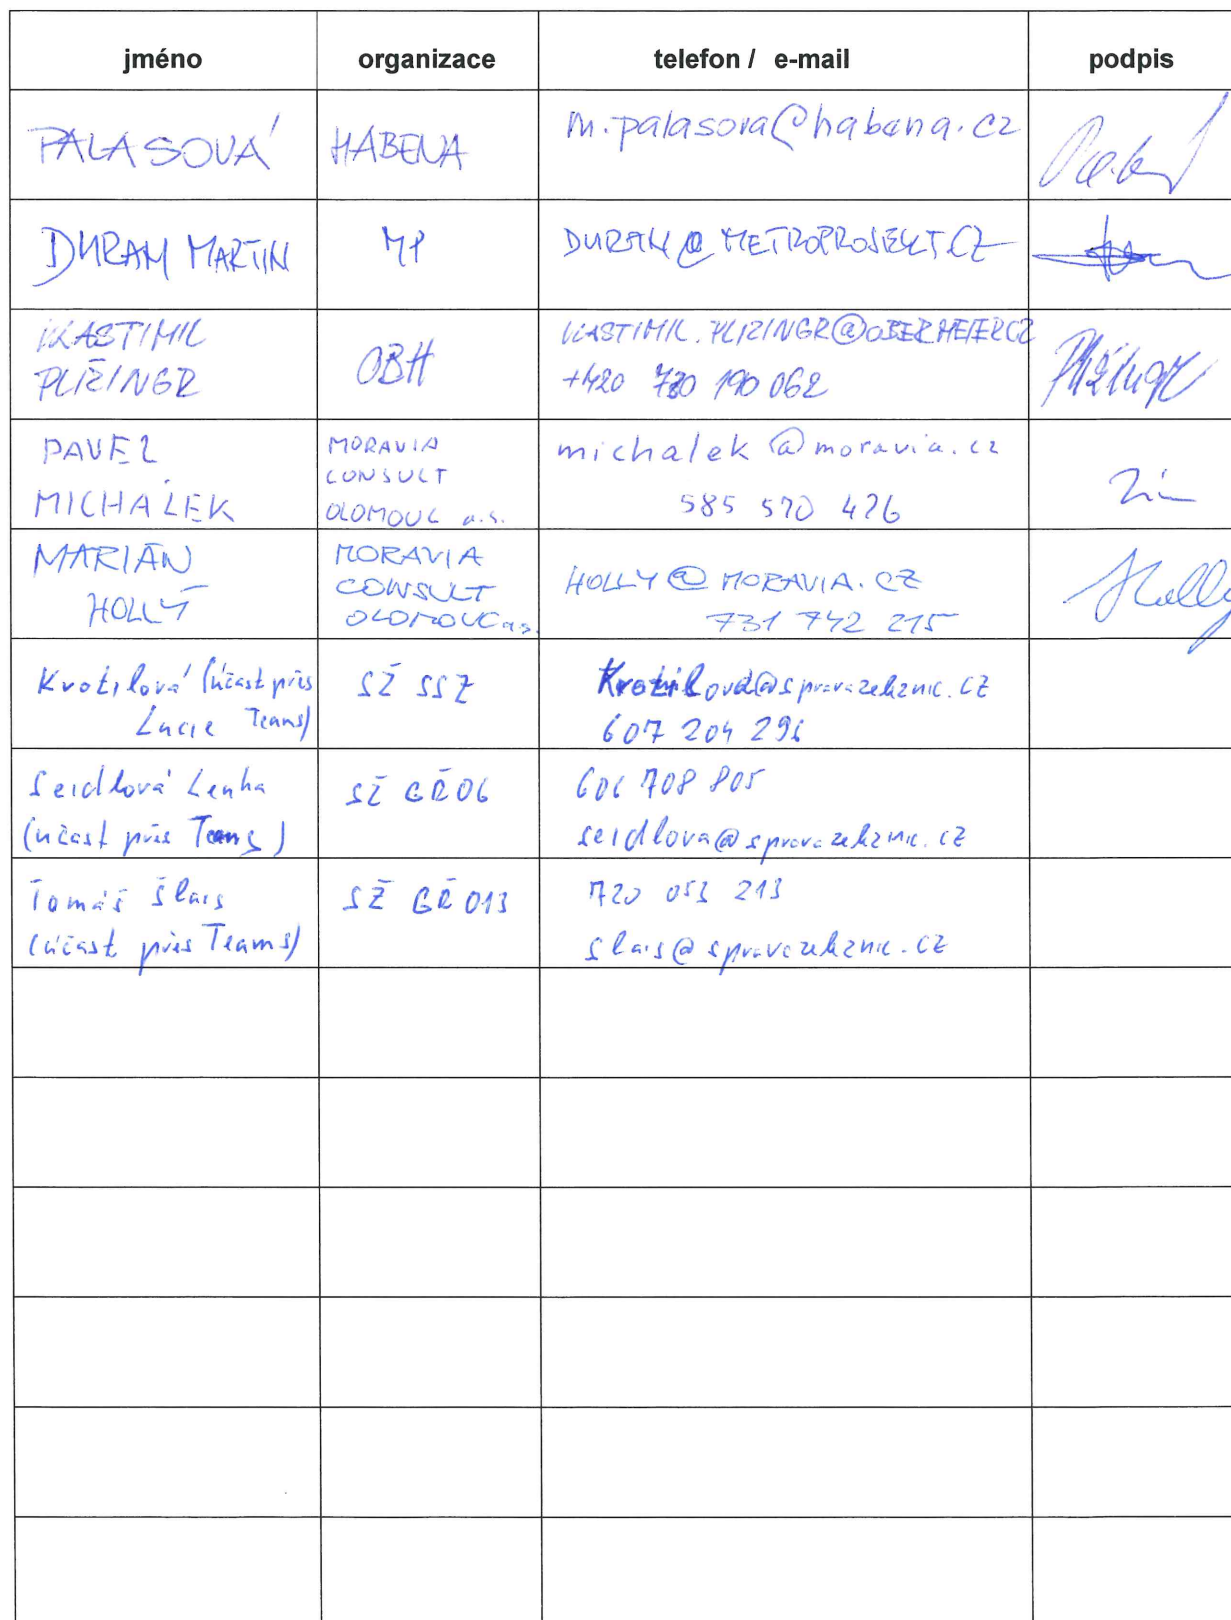 jméno organizace telefon / e-mail podpis
PALASOVÁ HABENA m.palasova@habena.cz
DURAN MARTIN MP DURAN@METROPROJEKT.CZ
VLASTIMIL
PLIŽINGR
OBH
VLASTIMIL.PLIZINGR@OBERMEIER.CZ
+420 730 190 062
PAVEL
MICHÁLEK
MORAVIA
CONSULT
OLOMOUC a.s.
michalek@moravia.cz
585 570 426
MARIÁN
HOLLÝ
MORAVIA
CONSULT
OLOMOUC a.s.
HOLLY@MORAVIA.CZ
731 742 215
(účast přes
Lucie Teams)
SŽ SSZ
607 204 296
Seidlová Lenka
(účast přes Teams)
SŽ GŘ O6
606 708 805
seidlova@spravazeleznic.cz
Tomáš Šlais
(účast přes Teams)
SŽ GŘ O13
720 053 213
slais@spravazeleznic.cz